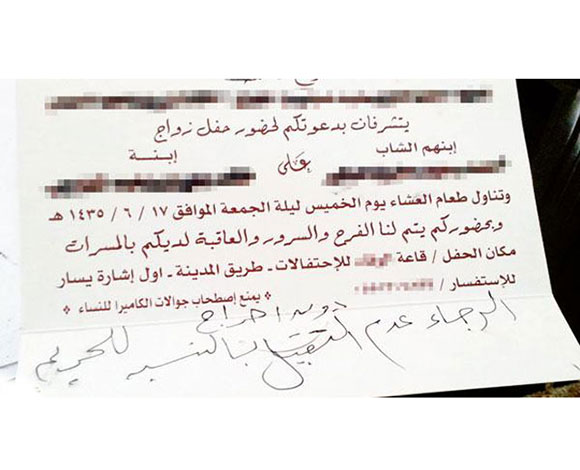 يتشرفان بدعوتكم لحضور حفل زواج
إبنهم الشاب إبنـــة
على
وتناول طعام العشاء يوم الخميس ليلة الجمعة الموافق ١٧ / ٦ / ١٤٣٥ هـ
وبحضوركم يتم لنا الفرح والسرور والعاقبة لديكم بالمسرات
مكان الحفل / قاعة للإحتفالات - طريق المدينة - اول إشارة يسار
للإستفسار /
* يمنع إصطحاب جوالات الكاميرا للنساء *
دون احراج
الرجاء عدم التقبيل بالنسبه للحريم